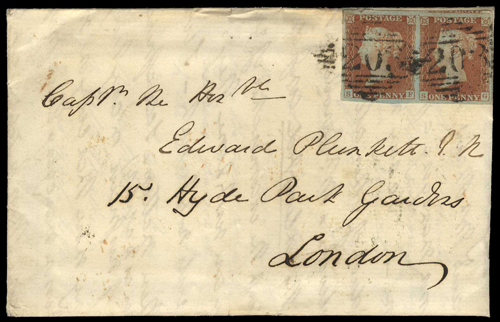 POSTAGE POSTAGE
20 20
ONE PENNY ONE PENNY
Captn. The Honble
Edward Plunkett. R. N
15. Hyde Park Gardens
London